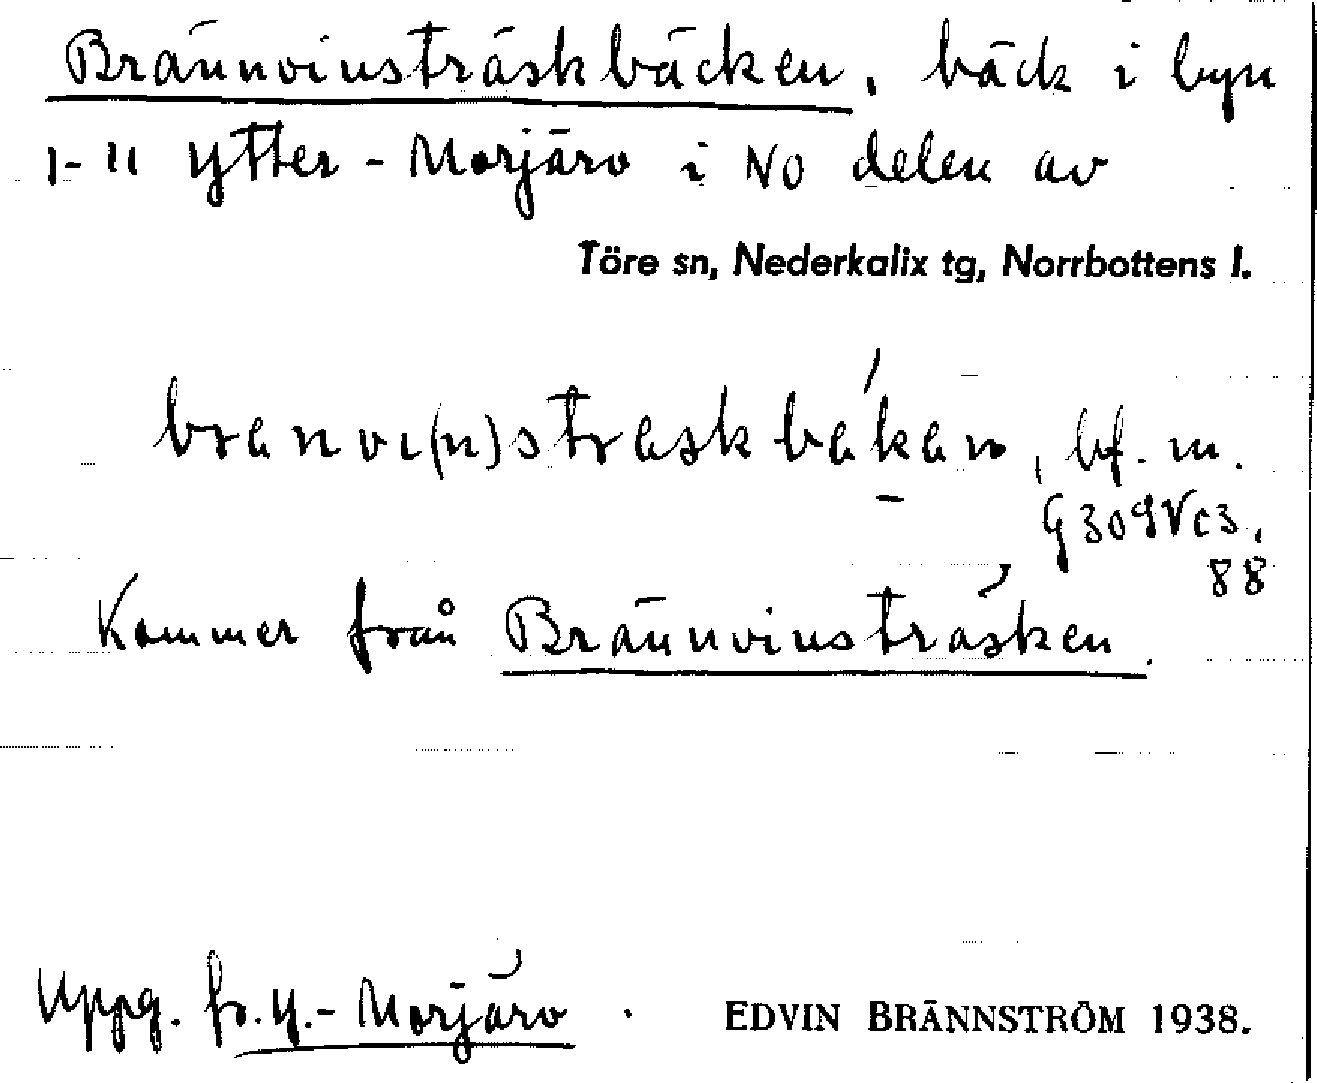 Brännvinsträskbäcken, bäck i byn
1-11 Ytter-Morjärv i NO delen av
Töre sn, Nederkalix tg, Norrbottens l.
branvi(n)straskbakan, bf. m.
G309Vc3.
88
Kommer från Brännvinsträsken.
Uppg. fr. Y.-Morjärv.
EDVIN BRÄNNSTRÖM 1938.